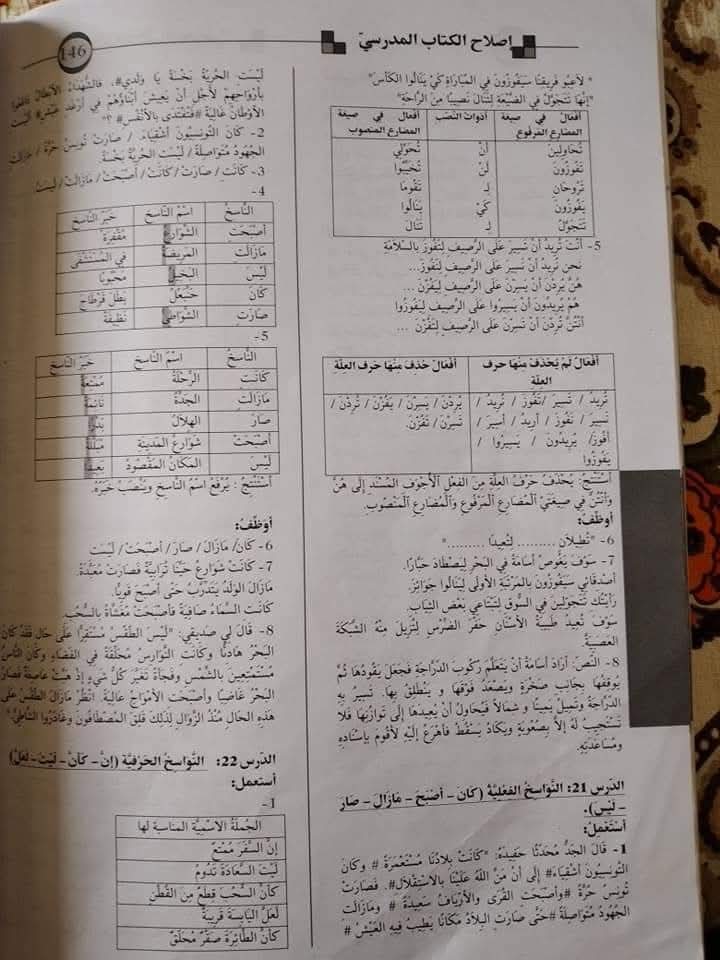 146
إصلاح الكتاب المدرسيّ
" لاَعِبُو فَرِيقِنَا سَيَفُوزُونَ فِي المُبَارَاةِ كَيْ يَنَالُوا الكَأْسَ"
"إنَّهَا تَتَجَوَّلُ فِي الضَّيْعَةِ لِتَنَالَ نَصِيبًا مِنَ الرَّاحَةِ"
أفْعَالُ فِي صِيغَةِ المُضَارِعِ المَرْفُوعِ | أدَوَاتُ النّصْبِ | أفْعَالُ فِي صِيغَةِ المُضَارِعِ المَنْصُوبِ
تُحَاوِلِينَ | أنْ | تُحَوِّلِي
تَفُوزُونَ | لَنْ
تَرُوحَانِ | لِـ | تَقُومَا
يَفُوزُونَ | كَيْ | يَنَالُوا
تَتَجَوَّلُ | لِـ | تَنَالَ
5- أنْتَ تُرِيدُ أنْ تَسِيرَ عَلَى الرَّصِيفِ لِتَفُوزَ بِالسَّلاَمَةِ
نَحنُ نُرِيدُ أنْ نَسِيرَ عَلَى الرَّصِيفِ لِنَفُوزَ...
هُنَّ يُرِدْنَ أنْ يَسِرْنَ عَلَى الرَّصِيفِ لِيَفُزْنَ ...
هُمْ يُرِيدُونَ أنْ يَسِيرُوا عَلَى الرَّصِيفِ لِيَفُوزُوا
أنْتُنَّ تُرِدْنَ أنْ تَسِرْنَ عَلَى الرَّصِيفِ لِتَفُزْنَ ...
أفْعَالُ لَمْ يُحْذَفْ مِنْهَا حَرفُ العِلّةِ | أفْعَالُ حُذفَ مِنْهَا حَرفُ العِلّةِ
تُرِيدُ / تَسِيرَ /تَفُوزَ / نُرِيدُ / | يُرِدْنَ / يَسِرْنَ / يَفُزْنَ / تُرِدْنَ /
نَسِيرَ / نَفُوزَ / أريدُ / أسِيرَ / | تَسِرْنَ / تَفُزْنَ.
أفُوزَ/ يُرِيدُونَ / يَسِيرُوا /
يَفُوزُوا
أسْتَنْتِجُ: يُحْذَفُ حَرْفُ العِلَّةِ مِنَ الفِعْلِ الأجْوَفِ المُسْنَدِ إلَى هُنَّ
وَأنْتُنَّ فِي صِيغَتَيْ المُضَارِعِ المَرْفُوعِ وَالمُضَارِعِ المَنْصُوبِ.
أوَظّفُ:
6- "تُطِيلاَنِ ......... لِتُعِيدَا ........."
7- سَوْفَ يَغُوصُ أسَامَةُ فِي البَحْرِ لِيَصْطَادَ حَبَّارًا.
أصْدِقَائِي سَيَفُوزُونَ بِالمَرْتَبَةِ الأولَى لِيَنَالُوا جَوَائِزَ.
رَأيْتُكِ تَتَجَوَّلِينَ فِي السُّوقِ لِتَبْتَاعِي بَعْضَ الثِّيَابِ.
سَوْفَ تُعِيدُ طَبِيبَةُ الأسْنَانِ حَفْرَ الضِّرْسِ لِتُزِيلَ مِنْهُ الشَّبَكَةَ
العَصَبِيَّةَ.
8- النَّصّ: أرَادَ أسَامَةُ أنْ يَتَعَلَّمَ رُكُوبَ الدَّرَّاجَةِ فَجَعَلَ يَقُودُهَا ثُمَّ
يُوقِفُهَا بِجَانِبِ صَخْرَةٍ وَيَصْعَدُ فَوْقَهَا وَ يَنْطَلِقُ بِهَا. تَسِيرُ بِهِ
الدَّرَّاجَةُ وَتَمِيلُ يَمِينًا وَ شمَالاً فَيُحَاوِلُ أنْ يُعِيدَهَا إلَى تَوَازُنِهَا فَلاَ
تَسْتَجِيبُ لَهُ إلاَّ بِصُعُوبَةٍ وَيَكَادُ يَسْقُطُ فَأهْرَعُ إلَيْهِ لأَقُومَ بِإسْنَادِهِ
وَمُسَاعَدَتِهِ.
الدّرْس 21: النّوَاسِخُ الفِعْلِيَّةُ (كَانَ - أصْبَحَ - مَازَالَ - صَارَ
- لَيْسَ).
أسْتَعْمِلُ:
1- قَالَ الجَدُّ مُحَدِّثًا حَفِيدَهُ: "كَانَتْ بِلاَدُنَا مُسْتَعْمَرَةً # وَكَانَ
التُّونِسِيُّونَ أشْقِيَاءَ# إلَى أنْ مَنَّ اللهُ عَلَيْنَا بِالاسْتِقْلاَلِ#. فَصَارَتْ
تُونِسُ حُرَّةً #وَأصْبَحَتِ القُرَى وَالأرْيَافُ سَعِيدَةً # وَمَازَالَتِ
الجُهُودُ مُتَوَاصِلَةً #حَتَّى صَارَتِ البِلاَدُ مَكَانًا يَطِيبُ فِيهِ العَيْشُ #
لَيْسَتِ الحُرِّيَّةُ بَخْسَةً يَا وَلَدِي#. فَالشُّهَدَاءُ الأبْطَالُ
بِأرْوَاحِهِمْ لأَجْلِ أنْ يَعِيشَ أبْنَاؤُهُمْ فِي أرْغَدِ عَيْشٍ# ألَيْسَتِ
الأوْطَانُ غَالِيَةً #فَتُفْتَدَى بِالأنْفُسِ# ؟"
2- كَانَ التُّونِسِيُّونَ أشْقِيَاءَ. / صَارَتْ تُونِسُ حُرَّةً / مَازَالَتِ
الجُهُودُ مُتَوَاصِلَةً / لَيْسَتِ الحُرِّيَّةُ بَخْسَةً
3- كَانَتْ / صَارَتْ / كَانَتْ / أصْبَحَتْ / مَازَالَتْ / لَيْسَتْ
4-
النّاسِخُ | اسْمُ النّاسِخِ | خَبَرُ النّاسِخِ
أصْبَحَتِ | الشَّوَارِعُ | مُقْفِرَةً
مَازَالَتِ | المَرِيضَةُ | فِي المُسْتَشْفَى
لَيْسَ | البَخِيلُ | مَحْبُوبًا
كَانَ | حَنَّبَعْلُ | بَطَلَ قَرْطَاجَ
صَارَتِ | الشَّوَاطِئُ | نَظِيفَةً
5-
النّاسِخُ | اسْمُ النّاسِخِ | خَبَرُ النّاسِخِ
كَانَتِ | الرِّحْلَةُ | مُمْتِعَةً
مَازَالَتِ | الجَدَّةُ | نَائِمَةً
صَارَ | الهِلاَلُ | بَدْرًا
أصْبَحَتْ | شَوَارِعُ المَدِينَةِ | مُبَلَّلَةً
لَيْسَ | المَكَانُ المَقْصُودُ | بَعِيدًا
أسْتَنْتِجُ : يُرْفَعُ اسْمُ النَّاسِخِ وَيُنْصَبُ خَبَرُهُ.
أوَظّفُ:
6- كَانَ/ مَازَالَ / صَارَ/ أصْبَحَتْ/ لَيْسَتْ
7- كَانَتْ شَوَارِعُ حَيِّنَا تُرَابِيَّةً فَصَارَتْ مُعَبَّدَةً.
مَازَالَ الوَلَدُ يَتَدَرَّبُ حَتَّى أصْبَحَ قَوِيًّا.
كَانَتِ السَّمَاءُ صَافِيَةً فَأصْبَحَتْ مُغَشَّاةً بِالسُّحُبِ.
8- قَالَ لِي صَدِيقِي: "لَيْسَ الطَّقْسُ مُسْتَقِرًّا عَلَى حَالٍ فَقَدْ كَانَ
البَحْرُ هَادِئًا وَكَانَتِ النَّوَارِسُ مُحَلِّقَةً فِي الفَضَاءِ وَكَانَ النَّاسُ
مُسْتَمْتِعِينَ بِالشَّمْسِ وَفَجْأةً تَغَيَّرَ كُلُّ شَيْءٍ إذْ هَبَّتْ عَاصِفَةٌ فَصَارَ
البَحْرُ غَاضِبًا وَأصْبَحَتِ الأمْوَاجُ عَالِيَةً. انْظُرْ مَازَالَ الطَّقْسُ عَلَى
هَذِهِ الحَالِ مُنْذُ الزَّوَالِ لِذَلِكَ قَلِقَ المُصْطَافُونَ وَغَادَرُوا الشَّاطِئَ."
الدّرْس 22: النّوَاسِخُ الحَرْفِيَّةُ (إنَّ - كَأنَّ - لَيْتَ - لَعَلَّ)
أستعمل:
1-
الجُمْلَةُ الاسْمِيَّةُ المُنَاسِبَةُ لَهَا
إنَّ السَّفَرَ مُمْتِعٌ
لَيْتَ السَّعَادَةَ تَدُومُ
كَأنَّ السُّحُبَ قِطَعٌ مِنَ القُطْنِ
لَعَلَّ اليَابِسَةَ قَرِيبَةٌ
كَأنَّ الطَّائِرَةَ صَقْرٌ مُحَلِّقٌ